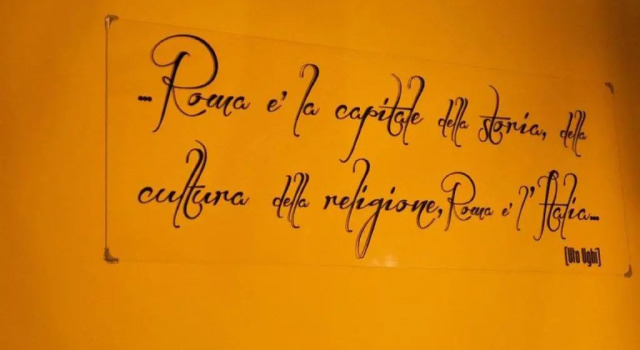 ...Roma e' la capitale della storia, della
cultura della religione, Roma e' l'Italia...
[Uto Ughi]